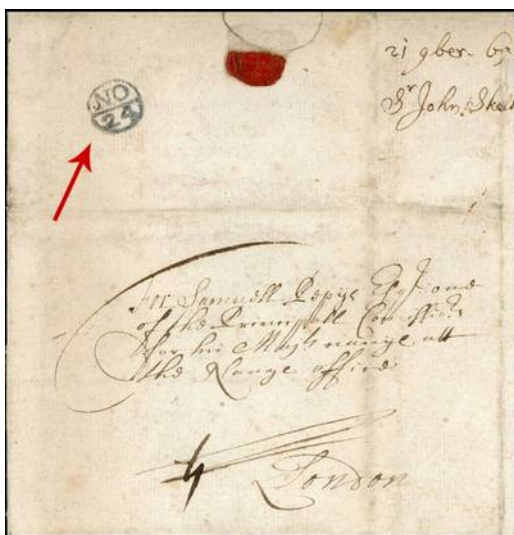 NO
24
21 9ber. 67
Sr John Skelt
For Samuell Pepys Esqr. one
of the Principall Comissrs.
for his Majts navye att
the Navye office
4
London